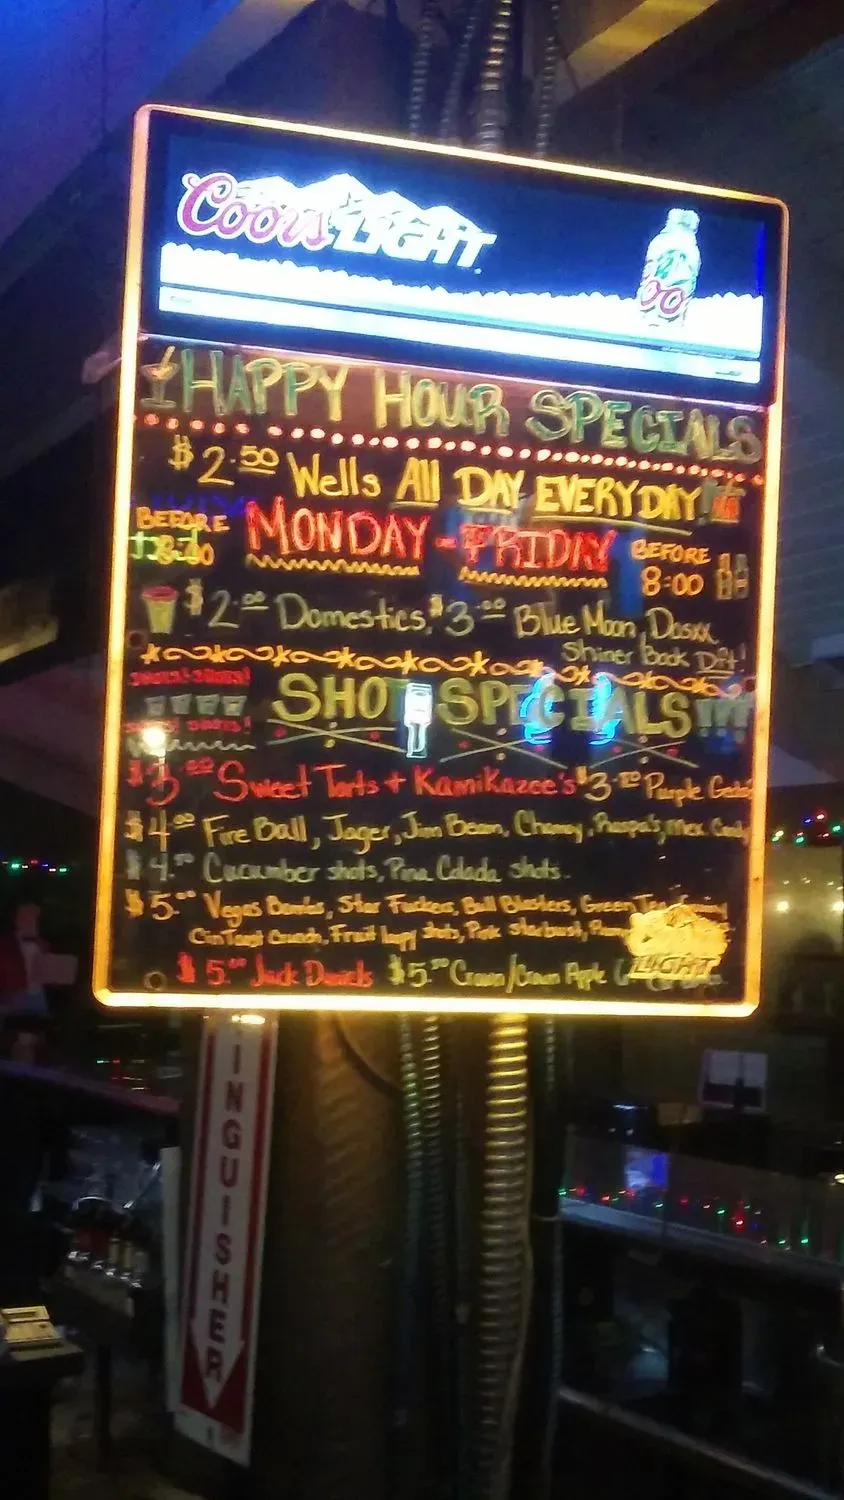 Coors LIGHT
Coo
HAPPY HOUR SPECIALS
$2.50 Wells All DAY EVERYDAY!
BEFORE 8:00 MONDAY - FRIDAY BEFORE 8:00
$2.00 Domestics, $3.00 Blue Moon, Dosxx
Shiner Bock Dft!
SHOTS! SHOTS!
SHOT SPECIALS!!!
SHOTS!
$3.00 Sweet Tarts + Kamikazee's $3.50 Purple
$4.00 Fire Ball, Jager, Jim Beam, Rumpa's, Mex.
$4. Cucumber shots, Pina Colada shots.
$5.00 Vegas Bombs, Star Fuckers, Ball Blasters, Green Tea,
Cin Toast Crunch, Fruit loopy shots, Pink Starburst,
$5.00 Jack Daniels $5.00 Crown/Crown Apple
LIGHT
INGUISHER